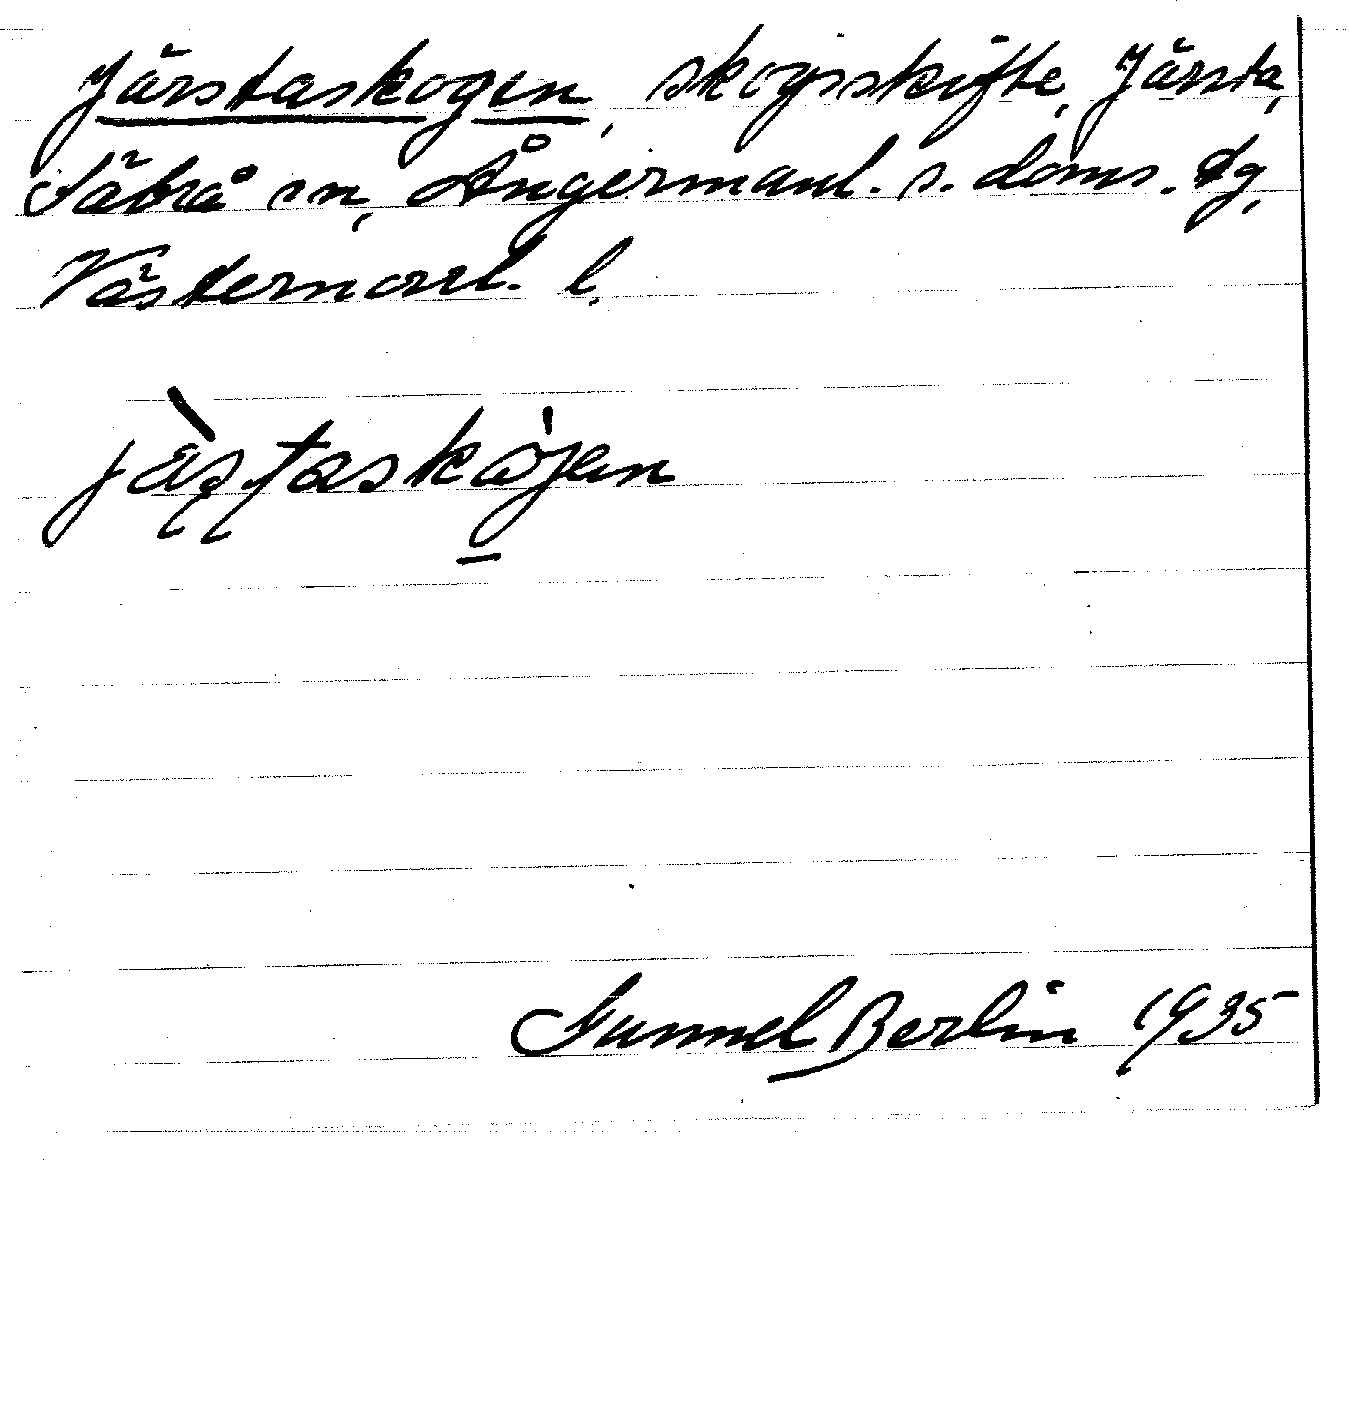 Järstaskogen, skogsskifte, Järsta,
Säbrå sn, Ångermanl. s. doms. tg,
Västernorrl. l.
jàʂʈaskójen
Gunnel Berlin 1935